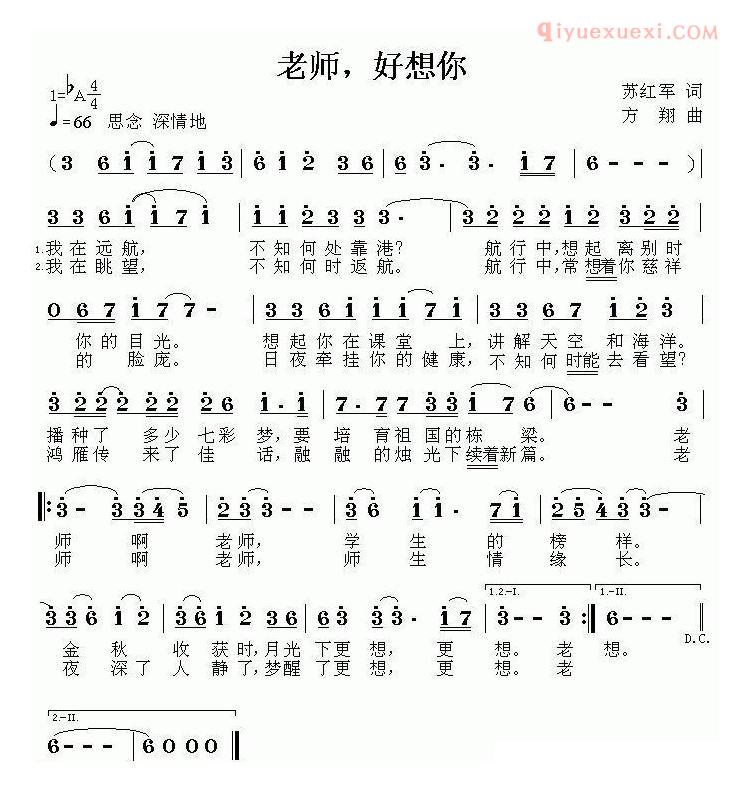 qiyuexuexi.com
老师，好想你
1=♭A 4/4
苏红军 词
♩=66 思念 深情地
方 翔 曲
（3 6 i i 7 i 3 | 6 i 2 3 6 | 6 3· 3· i 7 | 6 - - - ）|
3 3 6 i i 7 i | i i 2 3 3 3· | 3 2 2 2 i 6 3 2 2
1.我在远航， 不知何处靠港？ 航行中，想起 离别时
2.我在眺望， 不知何时返航。 航行中，常想着你慈祥
0 6 7 i 7 7 - | 3 3 6 i i i 7 i | 3 3 6 6 7 i 2 3
你的目光。 想起你在课堂 上，讲解天空 和海洋。
的 脸庞。 日夜牵挂你的健康，不知何时能去看望？
3 2 2 2 2 2 2 6 i· i | 7· 7 7 7 3 3 i 7 6 | 6 - - 3
播种了 多少 七彩 梦，要 培 育祖 国的栋 梁。 老
鸿雁传 来了 佳 话，融 融 的烛 光下续着新篇。 老
3 - 3 3 4 5 | 2 3 3 - | 3 6 i i· 7 i | 2 5 4 3 3 -
师 啊 老师， 学 生 的 榜 样。
师 啊 老师， 师 生 情 缘 长。
3 3 6 i 2 | 3 6 i 2 3 6 | 3 6 3 3· i 7 | 3 - - 3 | 6 - - -
1.2-I.
1.-II.
D.C.
金 秋 收 获 时，月光 下更 想， 更 想。 老 想。
夜 深了 人 静了，梦醒 了更 想， 更 想。 老
2.-II.
6 - - - | 6 0 0 0